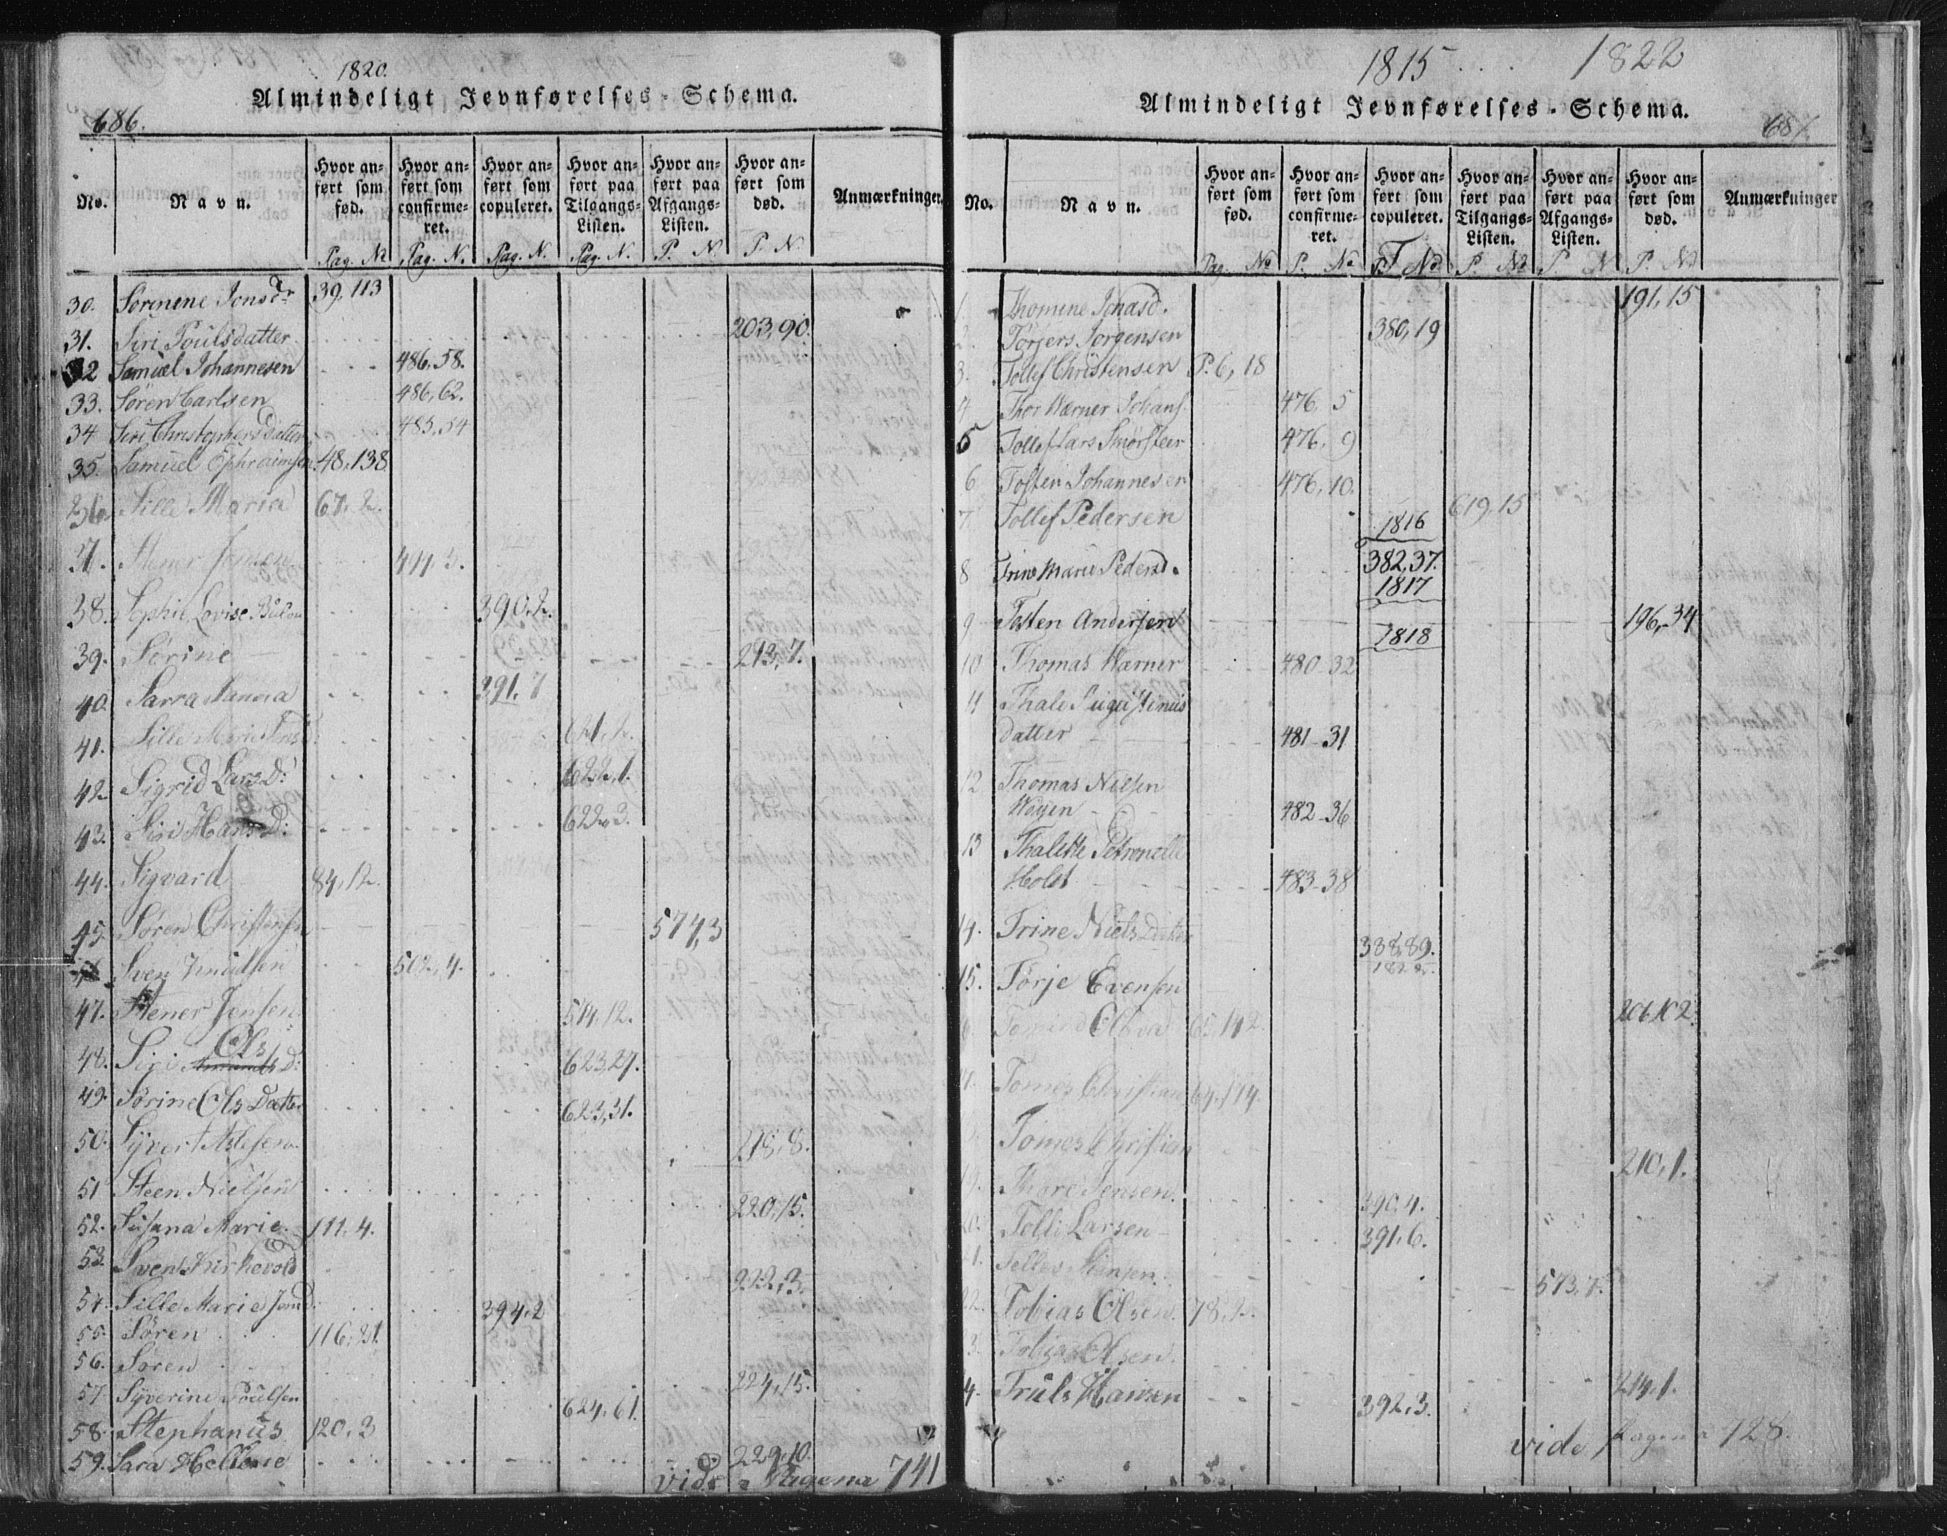 1820.
Almindeligt Jevnførelses-Schema.
686.
No. Navn. Hvor anført som fød. Hvor anført som confirmeret. Hvor anført som copuleret. Hvor anført paa Tilgangs-Listen. Hvor anført paa Afgangs-Listen. Hvor anført som død. Anmærkninger.
Pag. No Pag. N. Pag. N. Pag. N. P. N. P. N.
30. Sørinene Jonsdr 39, 113
31. Siri Poulsdatter 203, 90.
32 Samuel Johannesen 486, 58.
33. Søren Carlsen 486, 62.
34 Siri Christophersdatter 485, 54
35. Samuel Ephraimsen 48, 138
36. Sille Maria 67, 2.
37. Stener Jensen
38. Sophie Lovise 390, 2.
39. Sørine 213, 7.
40. Sarra Maria 391, 7
41. Sille Marie
42. Sigrid LarsD: 622, 1.
43. Siri HansD: 622, 3.
44. Sigvard 84, 12.
45. Søren Christensen 577, 3
Sven Knudsen 502, 4.
47. Stener Jensen 514, 12.
48. Siri Ols D: 623, 29.
49. Sørine Ols Datter 623, 31.
50. Syvert 218, 8.
51 Steen Nielsen 220, 15.
52. Susana Marie 111, 4.
53. Sven Kirkevold 222, 3.
54. Sille Marie 394, 2
55. Søren 116, 21.
56. Søren 224, 15.
57. Syverine Poulsen 624, 61.
58. Stephanus 120, 3
59. Sara Hellene 229, 10.
vide Pagina 741
1815 1822
Almindeligt Jevnførelses-Schema.
687.
No. Navn. Hvor anført som fød. Hvor anført som confirmeret. Hvor anført som copuleret. Hvor anført paa Tilgangs-Listen. Hvor anført paa Afgangs-Listen. Hvor anført som død. Anmærkninger
Pag. No P. No P. No P. No P. N P. No
1. Thomine Jonasd. 191, 15
2. Torjers Jorgensen 380, 19
3. Tollef Christensen P. 6, 18
4 Thor Værner Johans 476, 5
5 Tollef Lars 476, 9
6 Tosten Johannesen 476, 10.
7 Tollef Pedersen 619, 15
1816
8 Trine Marie Pedersd. 382, 37.
1817
9 Tosten Andersen 196, 34
1818
10 Thomas Warner 480-32
11 Thale Augustinus
datter 481-31
12 Thomas Nielsen
Weyen 482-36
13 Thalette Petronelle
Holst 483-38
14. Trine Niels Datter 388, 89.
15. Torje Evensen 206, 102.
Olsen 65, 142
Tomes Christian 64, 114.
Tomes Christian 210, 1.
19. Thore Jensen 390, 4.
20. Tolli Larsen 391, 6.
573, 7.
22. Tobias Olsen 78, 2.
3. Tobias Olsen 214, 1.
4. Truls Hansen 392, 3.
vide pagina 728.